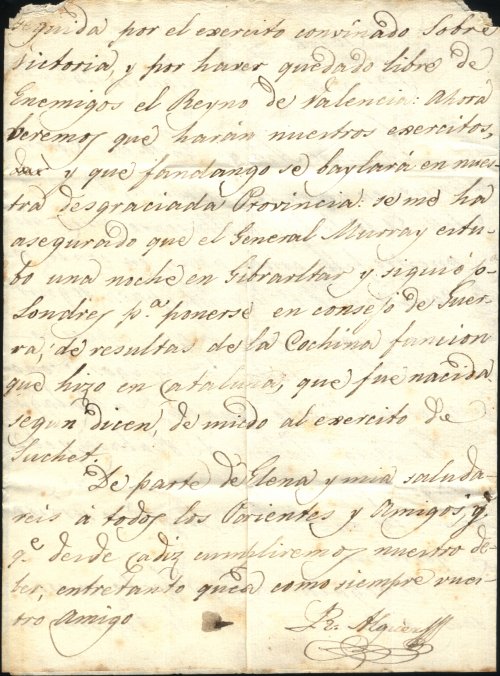 seguida por el exercito convinado Sobre
victoria, y por haver quedado libre de
Enemigos el Reyno de Valencia: Ahora
beremos que harán nuestros exercitos,
y que fandango se baylará en nues-
tra desgraciada Provincia: se me ha
asegurado que el General Murray estu-
bo una noche en Gibraltar y siguió pª
Londres pª ponerse en consejo de Guer-
ra, de resultas de la Cochina funcion
que hizo en Cataluña, que fue nacida
segun dicen, de miedo al exercito de
Suchet.
De parte de Elena y mia saluda-
reis à todos los Parientes y Amigos, y
qe desde Cadiz cumpliremos nuestro de-
ber, entretanto queda como siempre vues-
tro Amigo
R. Alguer